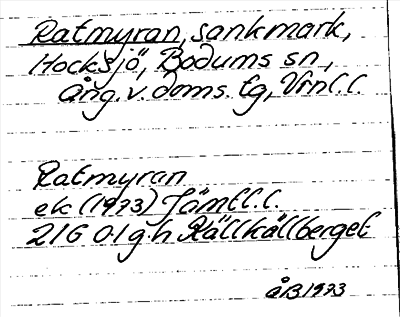 Ratmyran, sankmark,
Hocksjö, Bodums sn,
Ång. v. doms. tg, Vrnl. l.
Ratmyran
ek (1973) Jämtl. l.
21G 01 g-h Källkällberget
ÅB 1973